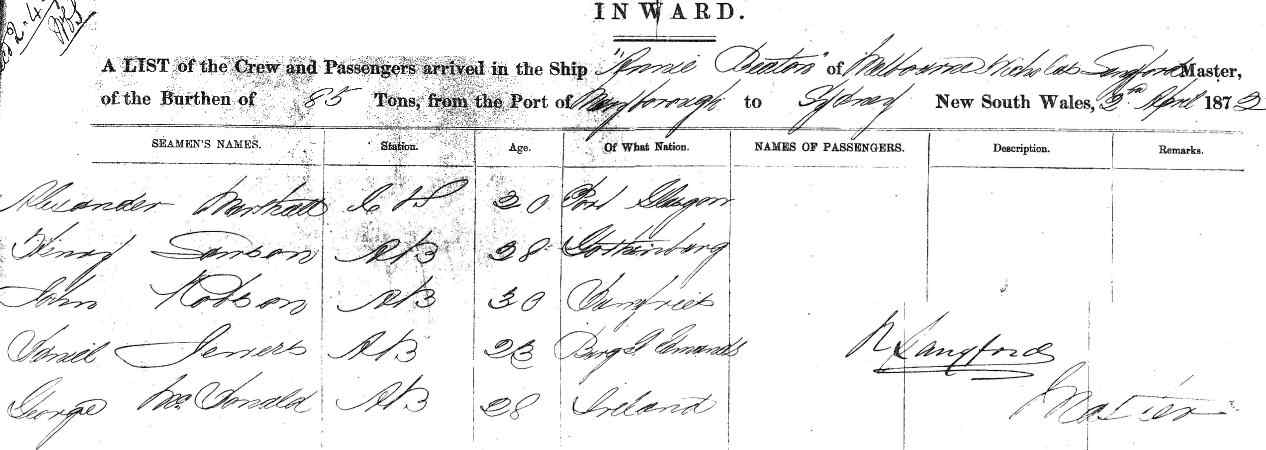 INWARD.
A LIST of the Crew and Passengers arrived in the Ship "Annie Beaton" of Melbourne Nicholas Langford Master,
of the Burthen of 85 Tons, from the Port of Maryborough to Sydney New South Wales, April 1872
SEAMEN'S NAMES. Station. Age. Of What Nation. NAMES OF PASSENGERS. Description. Remarks.
Alexander Marshall 30 Port Glasgow
Henry Samson AB 28 Gothenburg
John Robson AB 30 Dumfries
Daniel AB 23
George McDonald AB 28 Ireland
N Langford
Master